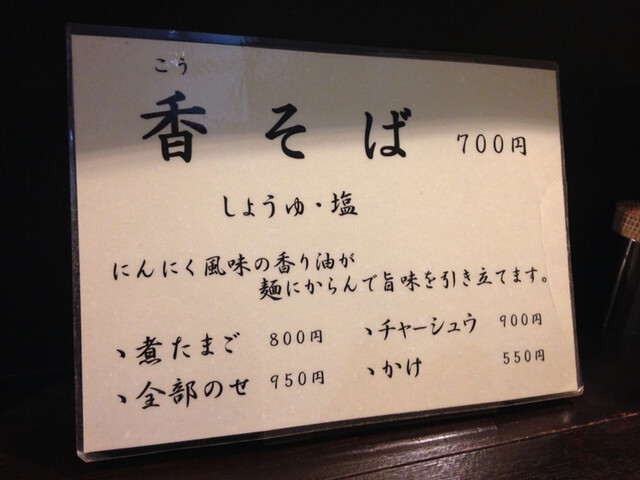 こう
香そば 700円
しょうゆ・塩
にんにく風味の香り油が
麺にからんで旨味を引き立てます。
、煮たまご 800円 、チャーシュウ 900円
、全部のせ 950円 、かけ 550円